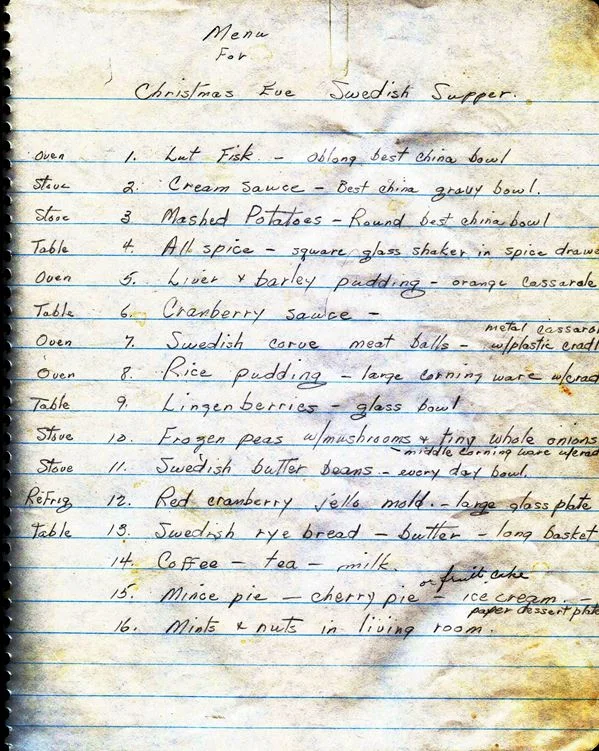 Menu
For
Christmas Eve Swedish Supper.
Oven 1. Lut Fisk - oblong best china bowl
Stove 2. Cream Sauce - Best china gravy bowl.
Stove 3 Mashed Potatoes - Round best china bowl
Table 4. All spice - square glass shaker in spice drawe
Oven 5. Liver & barley pudding - orange cassarole
Table 6. Cranberry sauce -
metal cassaro
Oven 7. Swedish corve meat balls - w/plastic cradl
Oven 8. Rice pudding - large corning ware w/crad
Table 9. Lingenberries - glass bowl
Stove 10. Frozen peas w/mushrooms & tiny whole onions
- middle corning ware w/crad
Stove 11. Swedish butter beans - every day bowl.
Refrig 12. Red cranberry jello mold. - large glass plate
Table 13. Swedish rye bread - butter - long basket
14. Coffee - tea - milk.
or fruit cake
15. Mince pie - cherry pie - ice cream. -
paper dessert plate
16. Mints & nuts in living room.